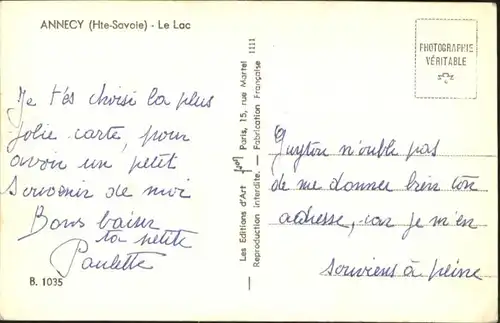 ANNECY (Hte-Savoie) - Le Lac
Je t'és choisi la plus
jolie carte, pour
avoir un petit
souvenir de moi
Bons baiser
ta petite
Paulette
B. 1035
Les Editions d'Art Paris, 15, rue Martel 1111
Reproduction interdite. — Fabrication Française
PHOTOGRAPHIE
VÉRITABLE
n'oublie pas
de me donner bien ton
adresse, car je m'en
souviens à peine